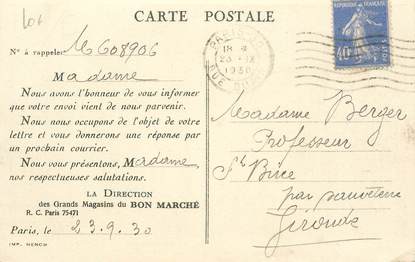 Lot
CARTE POSTALE
N° à rappeler M 608906
Madame
Nous avons l'honneur de vous informer
que votre envoi vient de nous parvenir.
Nous nous occupons de l'objet de votre
lettre et vous donnerons une réponse par
un prochain courrier.
Nous vous présentons, Madame,
nos respectueuses salutations.
LA DIRECTION
des Grands Magasins du BON MARCHÉ
R. C. Paris 75471
Paris, le 23.9.30
IMP. HENON
PARIS
18
23 IX
1930
RUE
REPUBLIQUE FRANÇAISE
40
Madame Berger
Professeur
St Brice
par Sauveterre
Gironde